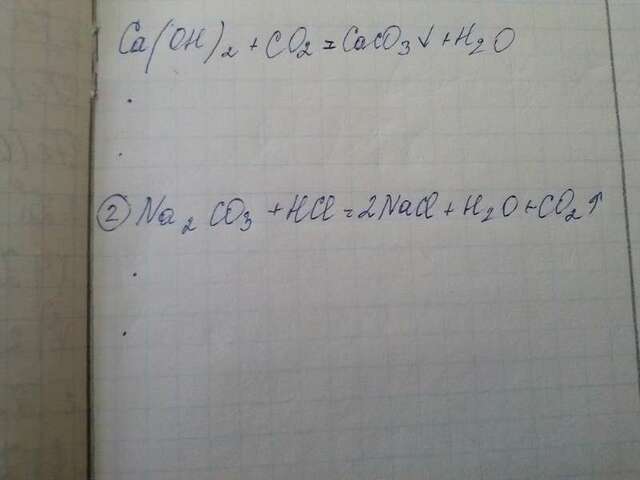 Ca(OH)₂ + CO₂ = CaCO₃↓ + H₂O
② Na₂CO₃ + HCl = 2NaCl + H₂O + CO₂↑